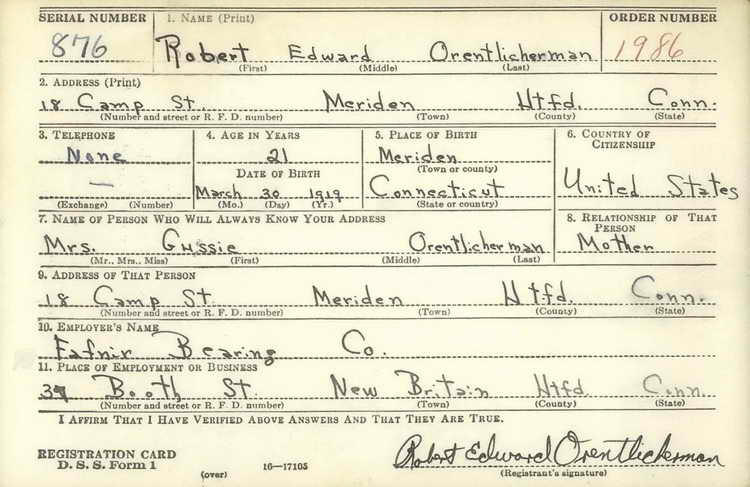 SERIAL NUMBER 1. NAME (Print) ORDER NUMBER
876 Robert Edward Orentlicherman 1986
(First) (Middle) (Last)
2. ADDRESS (Print)
18 Camp St. Meriden Htfd. Conn.
(Number and street or R. F. D. number) (Town) (County) (State)
3. TELEPHONE 4. AGE IN YEARS 5. PLACE OF BIRTH 6. COUNTRY OF CITIZENSHIP
None 21 Meriden
DATE OF BIRTH (Town or county)
— March 30 1919 Connecticut United States
(Exchange) (Number) (Mo.) (Day) (Yr.) (State or country)
7. NAME OF PERSON WHO WILL ALWAYS KNOW YOUR ADDRESS 8. RELATIONSHIP OF THAT PERSON
Mrs. Gussie Orentlicherman Mother
(Mr., Mrs., Miss) (First) (Middle) (Last)
9. ADDRESS OF THAT PERSON
18 Camp St. Meriden Htfd. Conn.
(Number and street or R. F. D. number) (Town) (County) (State)
10. EMPLOYER'S NAME
Fafnir Bearing Co.
11. PLACE OF EMPLOYMENT OR BUSINESS
37 Booth St. New Britain Htfd Conn.
(Number and street or R. F. D. number) (Town) (County) (State)
I AFFIRM THAT I HAVE VERIFIED ABOVE ANSWERS AND THAT THEY ARE TRUE.
REGISTRATION CARD Robert Edward Orentlicherman
D. S. S. Form 1 (over) 16—17105 (Registrant's signature)